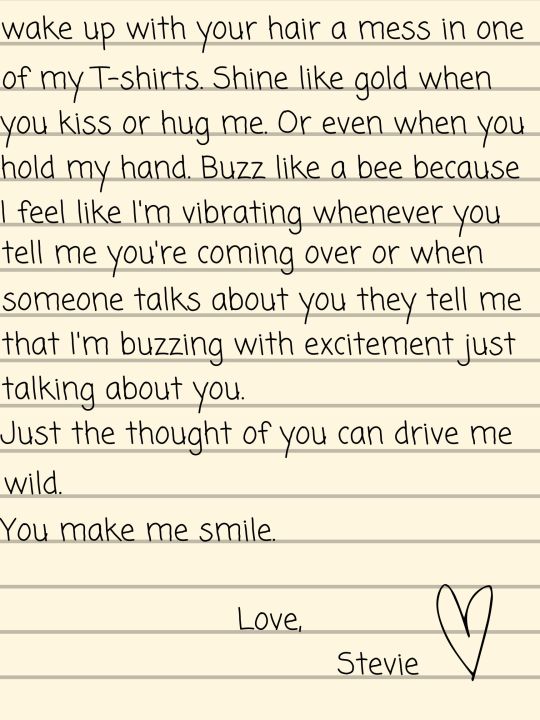 wake up with your hair a mess in one
of my T-shirts. Shine like gold when
you kiss or hug me. Or even when you
hold my hand. Buzz like a bee because
I feel like I'm vibrating whenever you
tell me you're coming over or when
someone talks about you they tell me
that I'm buzzing with excitement just
talking about you.
Just the thought of you can drive me
wild.
You make me smile.
Love,
Stevie